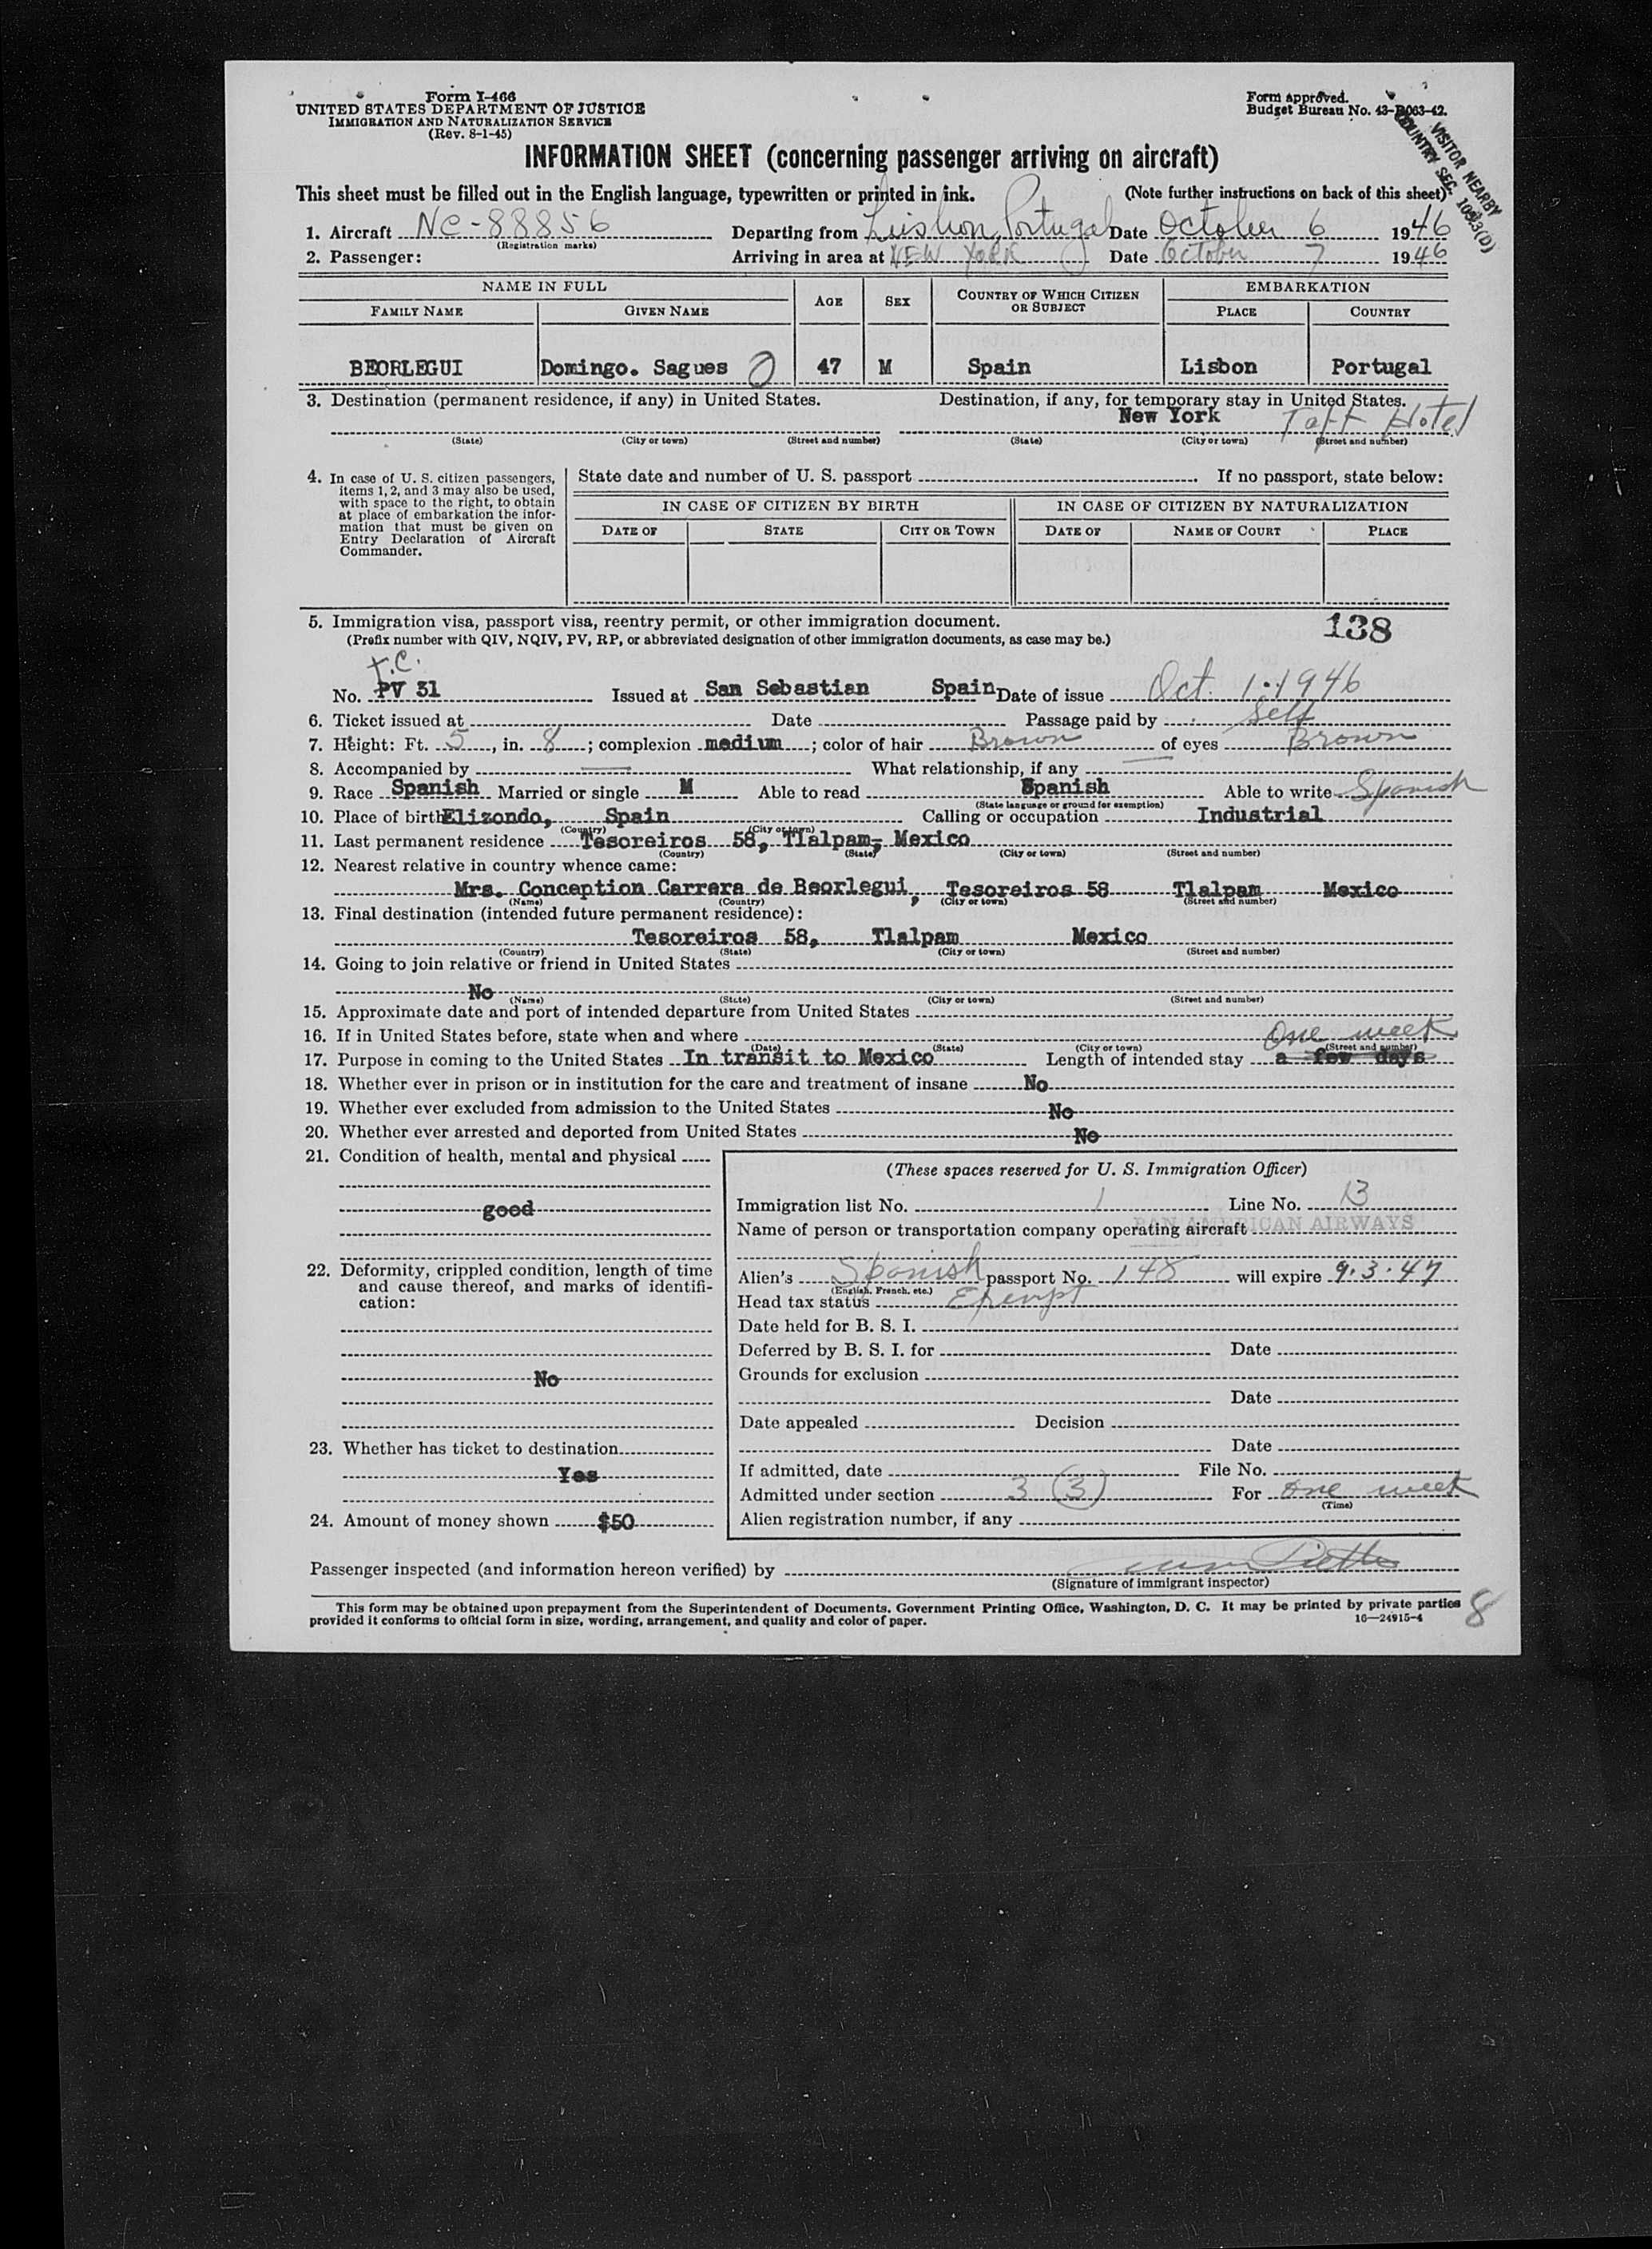 Form I-466
UNITED STATES DEPARTMENT OF JUSTICE
IMMIGRATION AND NATURALIZATION SERVICE
(Rev. 8-1-45)
Form approved.
Budget Bureau No. 43-R063-42.
VISITOR NEARBY
COUNTRY SEC.
INFORMATION SHEET (concerning passenger arriving on aircraft)
This sheet must be filled out in the English language, typewritten or printed in ink. (Note further instructions on back of this sheet)
1. Aircraft NC-88856 Departing from Lisbon, Portugal Date October 6 1946
(Registration marks)
2. Passenger: Arriving in area at NEW YORK Date October 7 1946
NAME IN FULL AGE SEX COUNTRY OF WHICH CITIZEN OR SUBJECT EMBARKATION
FAMILY NAME GIVEN NAME PLACE COUNTRY
BEORLEGUI Domingo. Sagues 47 M Spain Lisbon Portugal
3. Destination (permanent residence, if any) in United States. Destination, if any, for temporary stay in United States.
New York Taft Hotel
(State) (City or town) (Street and number) (State) (City or town) (Street and number)
4. In case of U. S. citizen passengers,
items 1, 2, and 3 may also be used,
with space to the right, to obtain
at place of embarkation the infor-
mation that must be given on
Entry Declaration of Aircraft
Commander.
State date and number of U. S. passport If no passport, state below:
IN CASE OF CITIZEN BY BIRTH IN CASE OF CITIZEN BY NATURALIZATION
DATE OF STATE CITY OR TOWN DATE OF NAME OF COURT PLACE
5. Immigration visa, passport visa, reentry permit, or other immigration document. 138
(Prefix number with QIV, NQIV, PV, RP, or abbreviated designation of other immigration documents, as case may be.)
T.C.
No. PV 31 Issued at San Sebastian Spain Date of issue Oct. 1. 1946
6. Ticket issued at Date Passage paid by Self
7. Height: Ft. 5, in. 8; complexion medium; color of hair Brown of eyes Brown
8. Accompanied by — What relationship, if any —
9. Race Spanish Married or single M Able to read Spanish Able to write Spanish
(State language or ground for exemption)
10. Place of birth Elizondo, Spain Calling or occupation Industrial
(Country) (City or town)
11. Last permanent residence Tesoreiros 58, Tlalpam- Mexico
(Country) (State) (City or town) (Street and number)
12. Nearest relative in country whence came:
Mrs. Conception Carrera de Beorlegui, Tesoreiros 58 Tlalpam Mexico
(Name) (Country) (City or town) (Street and number)
13. Final destination (intended future permanent residence):
Tesoreiros 58, Tlalpam Mexico
(Country) (State) (City or town) (Street and number)
14. Going to join relative or friend in United States
No
(Name) (State) (City or town) (Street and number)
15. Approximate date and port of intended departure from United States
16. If in United States before, state when and where One week
(Date) (State) (City or town) (Street and number)
17. Purpose in coming to the United States In transit to Mexico Length of intended stay a few days
18. Whether ever in prison or in institution for the care and treatment of insane No
19. Whether ever excluded from admission to the United States No
20. Whether ever arrested and deported from United States No
21. Condition of health, mental and physical
good
22. Deformity, crippled condition, length of time
and cause thereof, and marks of identifi-
cation:
No
23. Whether has ticket to destination
Yes
24. Amount of money shown $50
(These spaces reserved for U. S. Immigration Officer)
Immigration list No. 1 Line No. 13
PAN AMERICAN AIRWAYS
Name of person or transportation company operating aircraft
Alien's Spanish passport No. 148 will expire 9.3.47
(English, French, etc.)
Head tax status Exempt
Date held for B. S. I.
Deferred by B. S. I. for Date
Grounds for exclusion
Date
Date appealed Decision
Date
If admitted, date File No.
Admitted under section 3 (3) For One week
(Time)
Alien registration number, if any
Passenger inspected (and information hereon verified) by
(Signature of immigrant inspector)
This form may be obtained upon prepayment from the Superintendent of Documents, Government Printing Office, Washington, D. C. It may be printed by private parties
provided it conforms to official form in size, wording, arrangement, and quality and color of paper. 16—24915-4
8